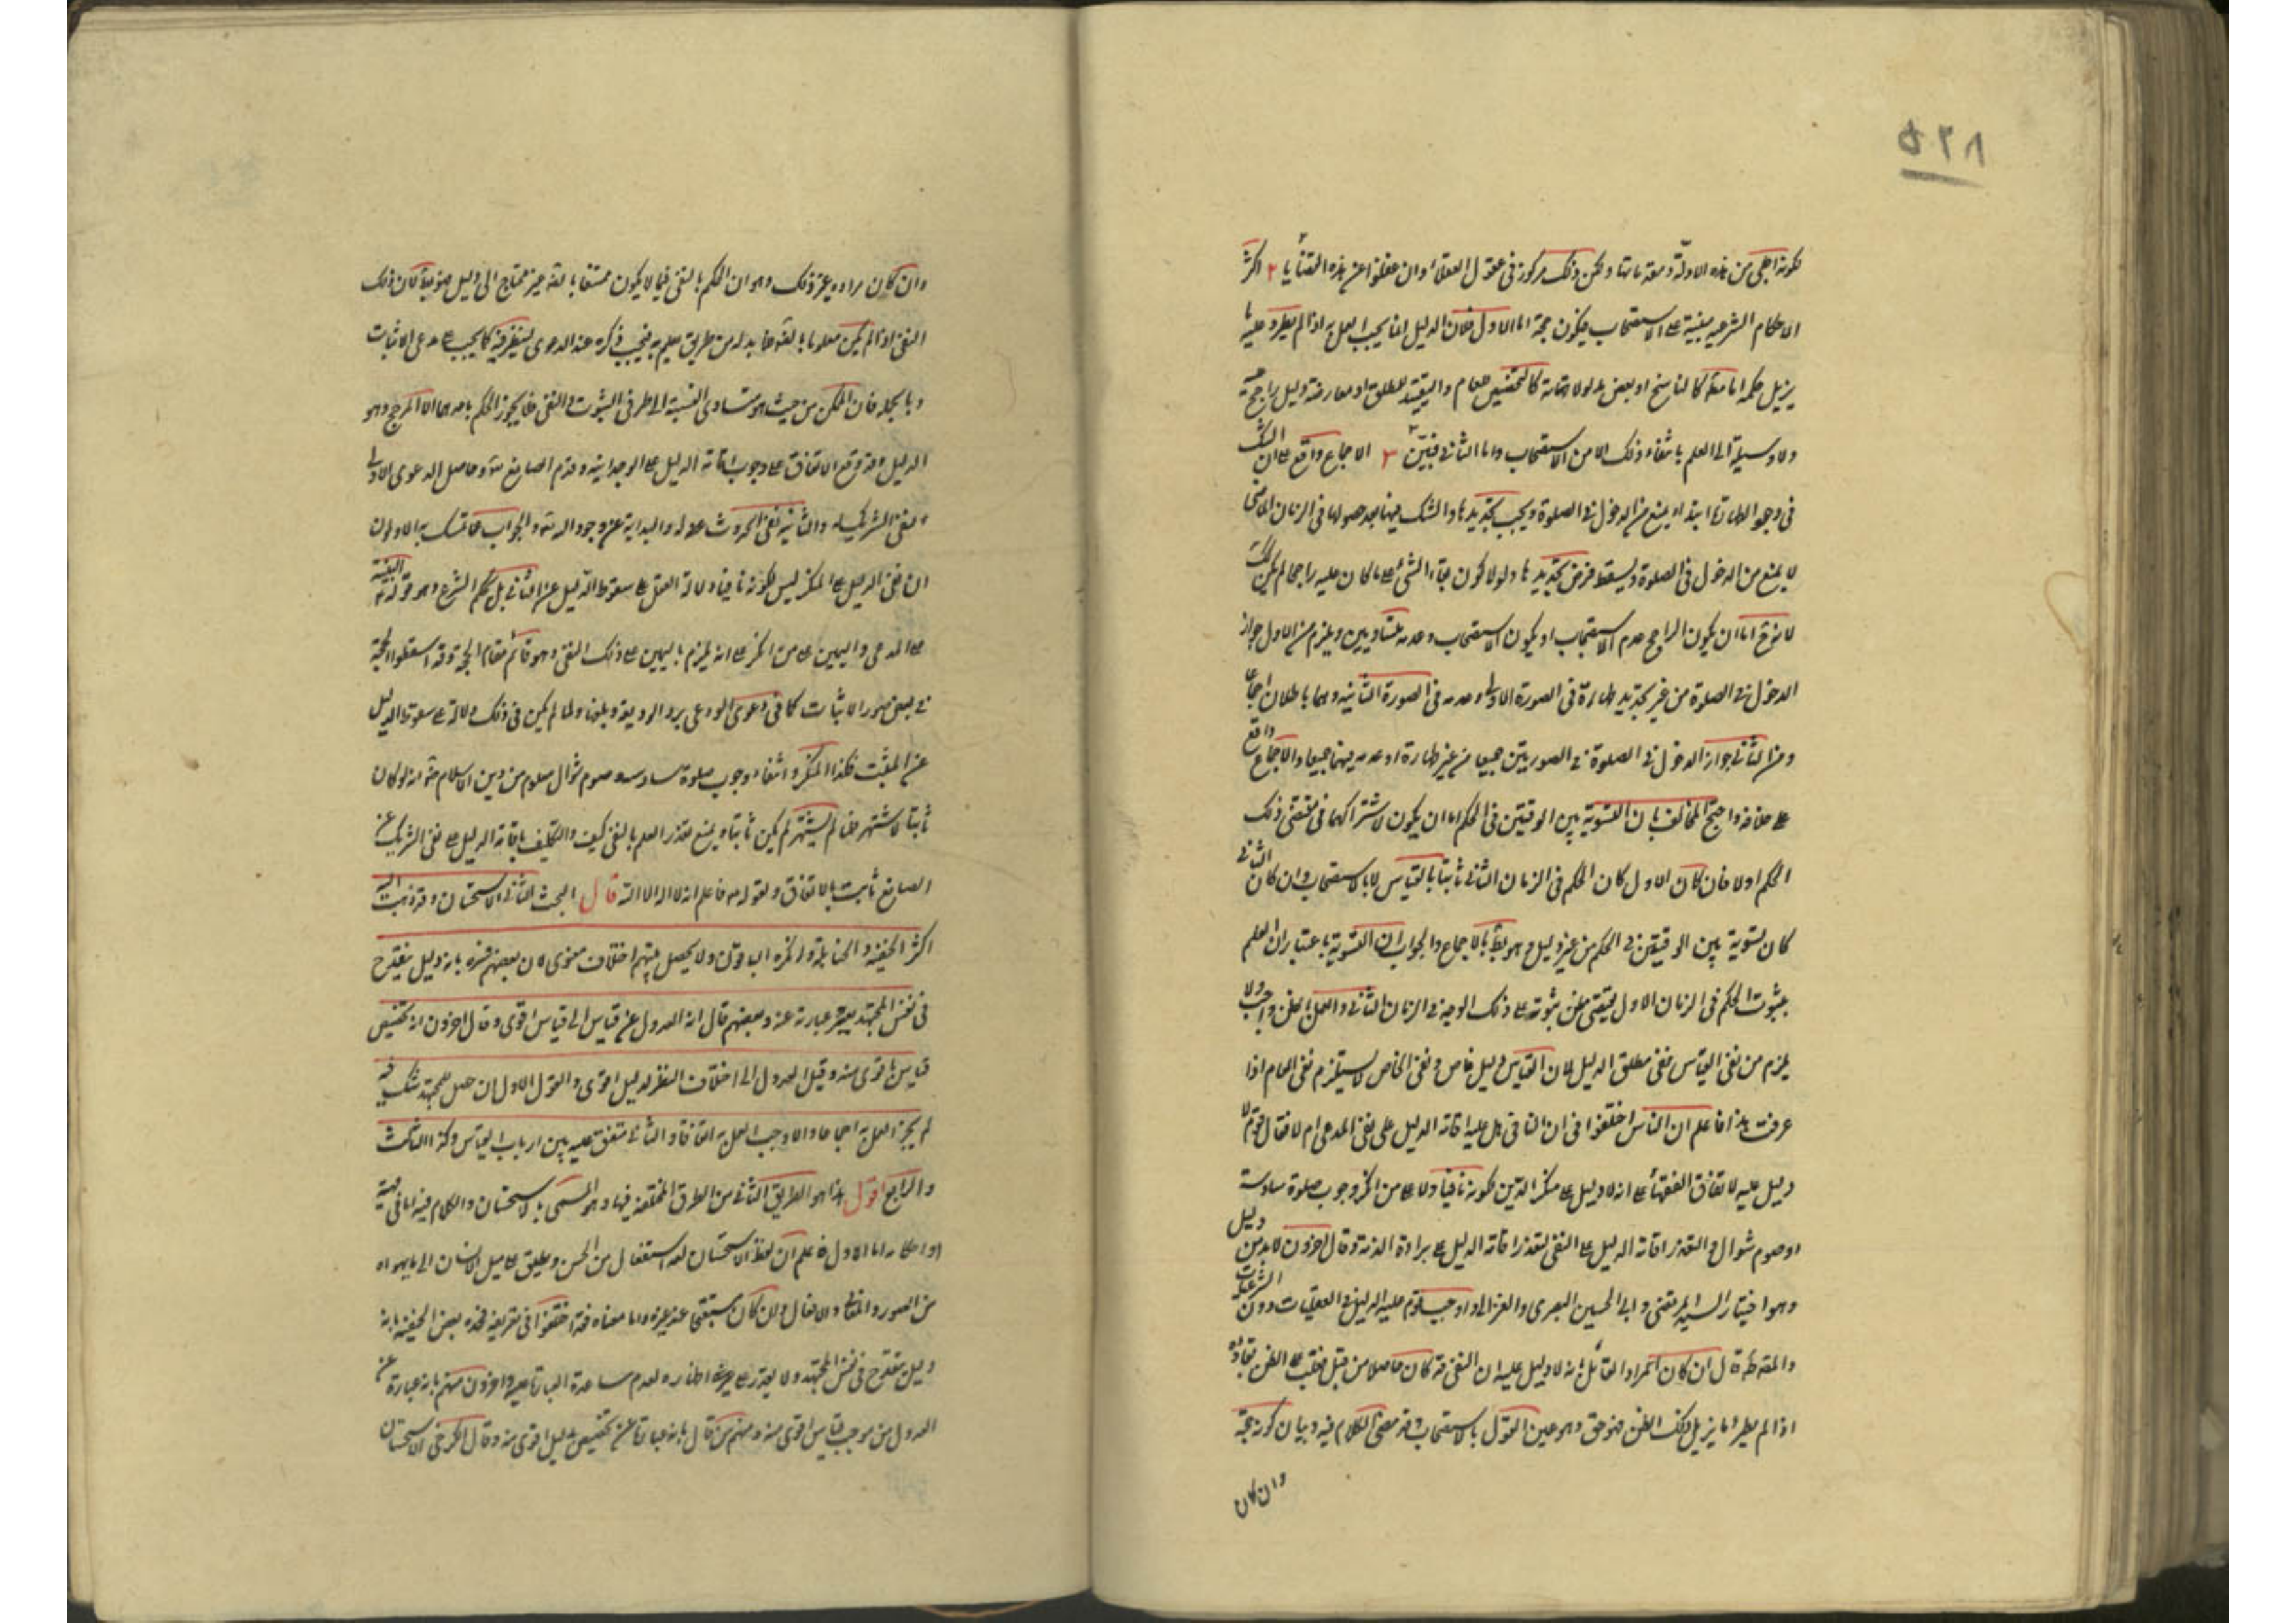 ٥٢٨
لكونه اجلى من هذه الادلة ومقدماتها ولكن ذلك مركوز فى عقول العقلاء وان غفلوا عن هذه القضايا ٢ اكثر
الاحكام الشرعيه مبنية على الاستصحاب فيكون حجة اما الاول فلان الدليل انما يجب العمل به اذا لم يطرء عليه ما
يزيل حكمه اما مطلقا كالناسخ او بعض مدلولاته كالتخصيص للعام والتقييد للمطلق او معارضة دليل راجح
ولا وسيلة الى العلم بانتفاء ذلك الا من الاستصحاب واما الثانى فبين ٣ الاجماع واقع على ان الشك
فى وجود الطهارة ابتداء يمنع من الدخول فى الصلوة ويجب تجديدها والشك فيها بعد حصولها فى الزمان الماضى
لا يمنع من الدخول فى الصلوة ويسقط فرض تجديدها ولولا كون بقاء الشئ على ما كان عليه راجحا لم يكن كذلك
لانه ح اما ان يكون الراجح عدم الاستصحاب او يكون الاستصحاب وعدمه متساويين ويلزم من الاول جواز
الدخول فى الصلوة من غير تجديد طهارة فى الصورة الاولى وعدمه فى الصورة الثانيه وهما باطلان اجماعا
ومن الثانى جواز الدخول فى الصلوة فى الصورتين جميعا من غير طهارة او عدمه فيهما جميعا والاجماع واقع
على خلافه واحتج المخالف بان التسوية بين الوقتين فى الحكم اما ان يكون لاشتراكهما فى مقتضى ذلك
الحكم اولا فان كان الاول كان الحكم فى الزمان الثانى ثابتا بالقياس لا بالاستصحاب وان كان الثانى
كان تسوية بين الوقتين فى الحكم من غير دليل وهو بط بالاجماع والجواب ان التسوية باعتبار ان العلم
بثبوت الحكم فى الزمان الاول يقتضى ظن ثبوته على ذلك الوجه فى الزمان الثانى والعمل بالظن واجب ولا
يلزم من نفى القياس نفى مطلق الدليل لان القياس دليل خاص ونفى الخاص لا يستلزم نفى العام اذا
عرفت هذا فاعلم ان الناس اختلفوا فى ان النافى هل عليه اقامة الدليل على نفى المدعى ام لا فقال قوم لا
دليل عليه لاتفاق الفقهاء على انه لا دليل على منكر الدين لكونه نافيا ولا على من انكر وجوب صلوة سادسة
او صوم شوال والتعذر اقامة الدليل على النفى لتعذر اقامة الدليل على براءة الذمة وقال اخرون لا بد من دليل
وهو اختيار السيد المرتضى وابى الحسين البصرى والغزالى واوجب قوم عليه الدليل فى العقليات دون الشرعيات
والمصنف قال ان كان المراد القائل بانه لا دليل عليه ان النفى قد كان حاصلا من قبل فغلب على الظن بقاؤه
اذا لم يطرء ما يزيل ذلك الظن فهو حق وهو عين القول بالاستصحاب وقد مضى الكلام فيه وبيان كونه حجة
وان كان
وان كان مراده غير ذلك وهو ان الحكم بالنفى فيما لا يكون مستفادا بالعقل غير محتاج الى دليل فهو بط لان ذلك
النفى اذا لم يكن معلوما بالعقل فلا بد له من طريق يعلم به فيجب ذكره عند الدعوى لينظر فيه كما يجب على مدعى الاثبات
وبالجمله فان الممكن من حيث هو متساوى النسبة الى طرفى الثبوت والنفى فلا يجوز الحكم باحدهما الا لمرجح وهو
الدليل وقد وقع الاتفاق على وجوب اقامة الدليل على الوحدانية وقدم الصانع تع وحاصل الدعوى الاولى
نفى الشريك له والثانيه نفى الحدوث عنه والبداية عن وجوده تع والجواب عما تمسك به الاولون
ان نفى الدليل على المنكر ليس لكونه نافيا ودلالة العقل على سقوط الدليل عن النافى بل بحكم الشرع وهو قوله ع البينة
على المدعى واليمين على من انكر على انه يلزم باليمين على ذلك النفى وهو قائم مقام الحجة وقد اسقطوا الحجة
فى بعض صور الاثبات كما فى دعوى الودعى برد الوديعة وتلفها ولما لم يكن فى ذلك دلالة على سقوط الدليل
عن المثبت فكذا المنكر وانتفاء وجوب صلوة سادسه وصوم شوال معلوم من دين الاسلام ضرورة انه لو كان
ثابتا لاشتهر فلما لم يشتهر لم يكن ثابتا ويمنع تعذر العلم بالنفى كيف والتكليف باقامة الدليل على نفى الشريك عن
الصانع ثابت بالاتفاق ولقوله تع فاعلم انه لا اله الا الله قال البحث الثانى الاستحسان وقد ذهب اليه
اكثر الحنفيه والحنابلة وانكره الباقون ولا يحصل بينهم اختلاف معنوى لان بعضهم فسره بانه دليل ينقدح
فى نفس المجتهد يعسر عبارته عنه وبعضهم قال انه العدول عن قياس الى قياس اقوى وقال اخرون انه تخصيص
قياس باقوى منه وقيل العدول الى اختلاف النظر لدليل اقوى والقول الاول ان حصل للمجتهد شك فيه
لم يجز العمل به اجماعا والا وجب العمل به اتفاقا والثانى متفق عليه بين ارباب القياس وكذا الثالث
والرابع اقول هذا هو الطريق الثانى من الطرق المختلف فيها وهو المسمى بالاستحسان والكلام فيه اما فى مهيته
او احكامه اما الاول فاعلم ان لفظ الاستحسان لغة استفعال من الحسن ويطلق على ميل الانسان الى ما يهواه
من الصور والمعانى والافعال وان كان مستقبحا عند غيره واما معناه فقد اختلفوا فى تعريفه فحده بعض الحنفيه بانه
دليل ينقدح فى نفس المجتهد ولا يقدر على اظهاره لعدم مساعدة العبارة عليه واخرون منهم بانه عبارة عن
العدول من موجب قياس الى قياس اقوى منه ومنهم من قال بانه عبارة عن تخصيص بدليل اقوى منه وقال الكرخى الاستحسان